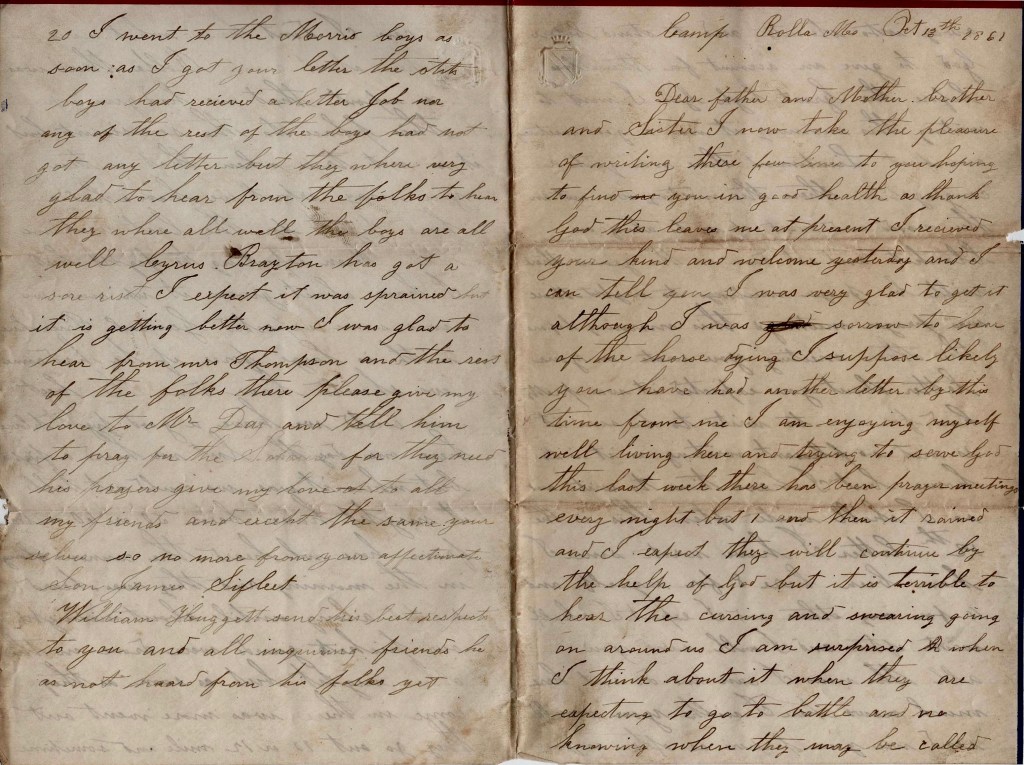 Camp Rolla Mo Oct 12th 1861
Dear father and Mother brother
and Sister I now take the pleasure
of writing these few lines to you hoping
to find you in good health as thank
God this leaves me at present I recieved
your kind and welcome yesterday and I
can tell you I was very glad to get it
although I was sorrow to hear
of the horse dying I suppose likely
you have had another letter by this
time from me I am enjoying myself
well living here and trying to serve God
this last week there has been prayer meetings
every night but 1 and then it rained
and I expect they will continue by
the help of God but it is terrible to
hear the cursing and swearing going
on around us I am surprised when
I think about it when they are
expecting to go to battle and no
knowing when they may be called
20 I went to the Morris boys as
soon as I got your letter the
boys had recieved a letter Job nor
any of the rest of the boys had not
got any letter but they where very
glad to hear from the folks to hear
they where all well the boys are all
well Cyrus Brayton has got a
sore rist I expect it was sprained but
it is getting better now I was glad to
hear from mrs Thompson and the rest
of the folks there please give my
love to Mr Day and tell him
to pray for the for they need
his prayers give my love to all
my friends and except the same your
selves so no more from your affectionate
Son James Sifleet
William Huggett send his best respects
to you and all inquiring friends he
as not heard from his folks yet